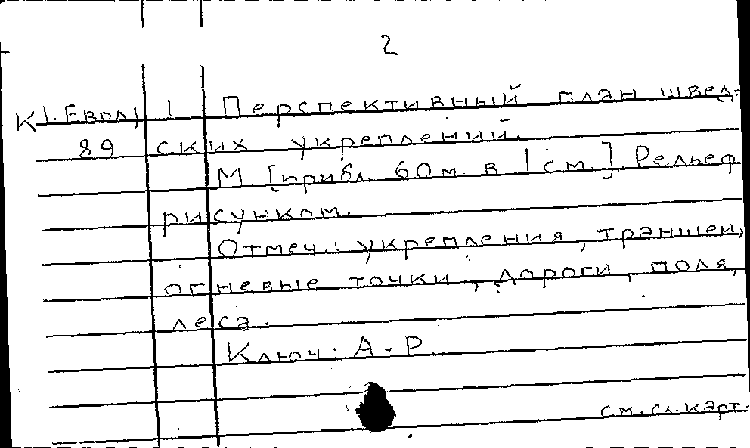 2
К 1. Евгл) 1 Перспективный план швед-
89 ских укреплений.
М [прибл. 60 м. в 1 см.] Рельеф
рисунком.
Отмеч.: укрепления, траншеи,
огневые точки, дороги, поля,
леса.
Ключ: А-Р
см. сл. карт.